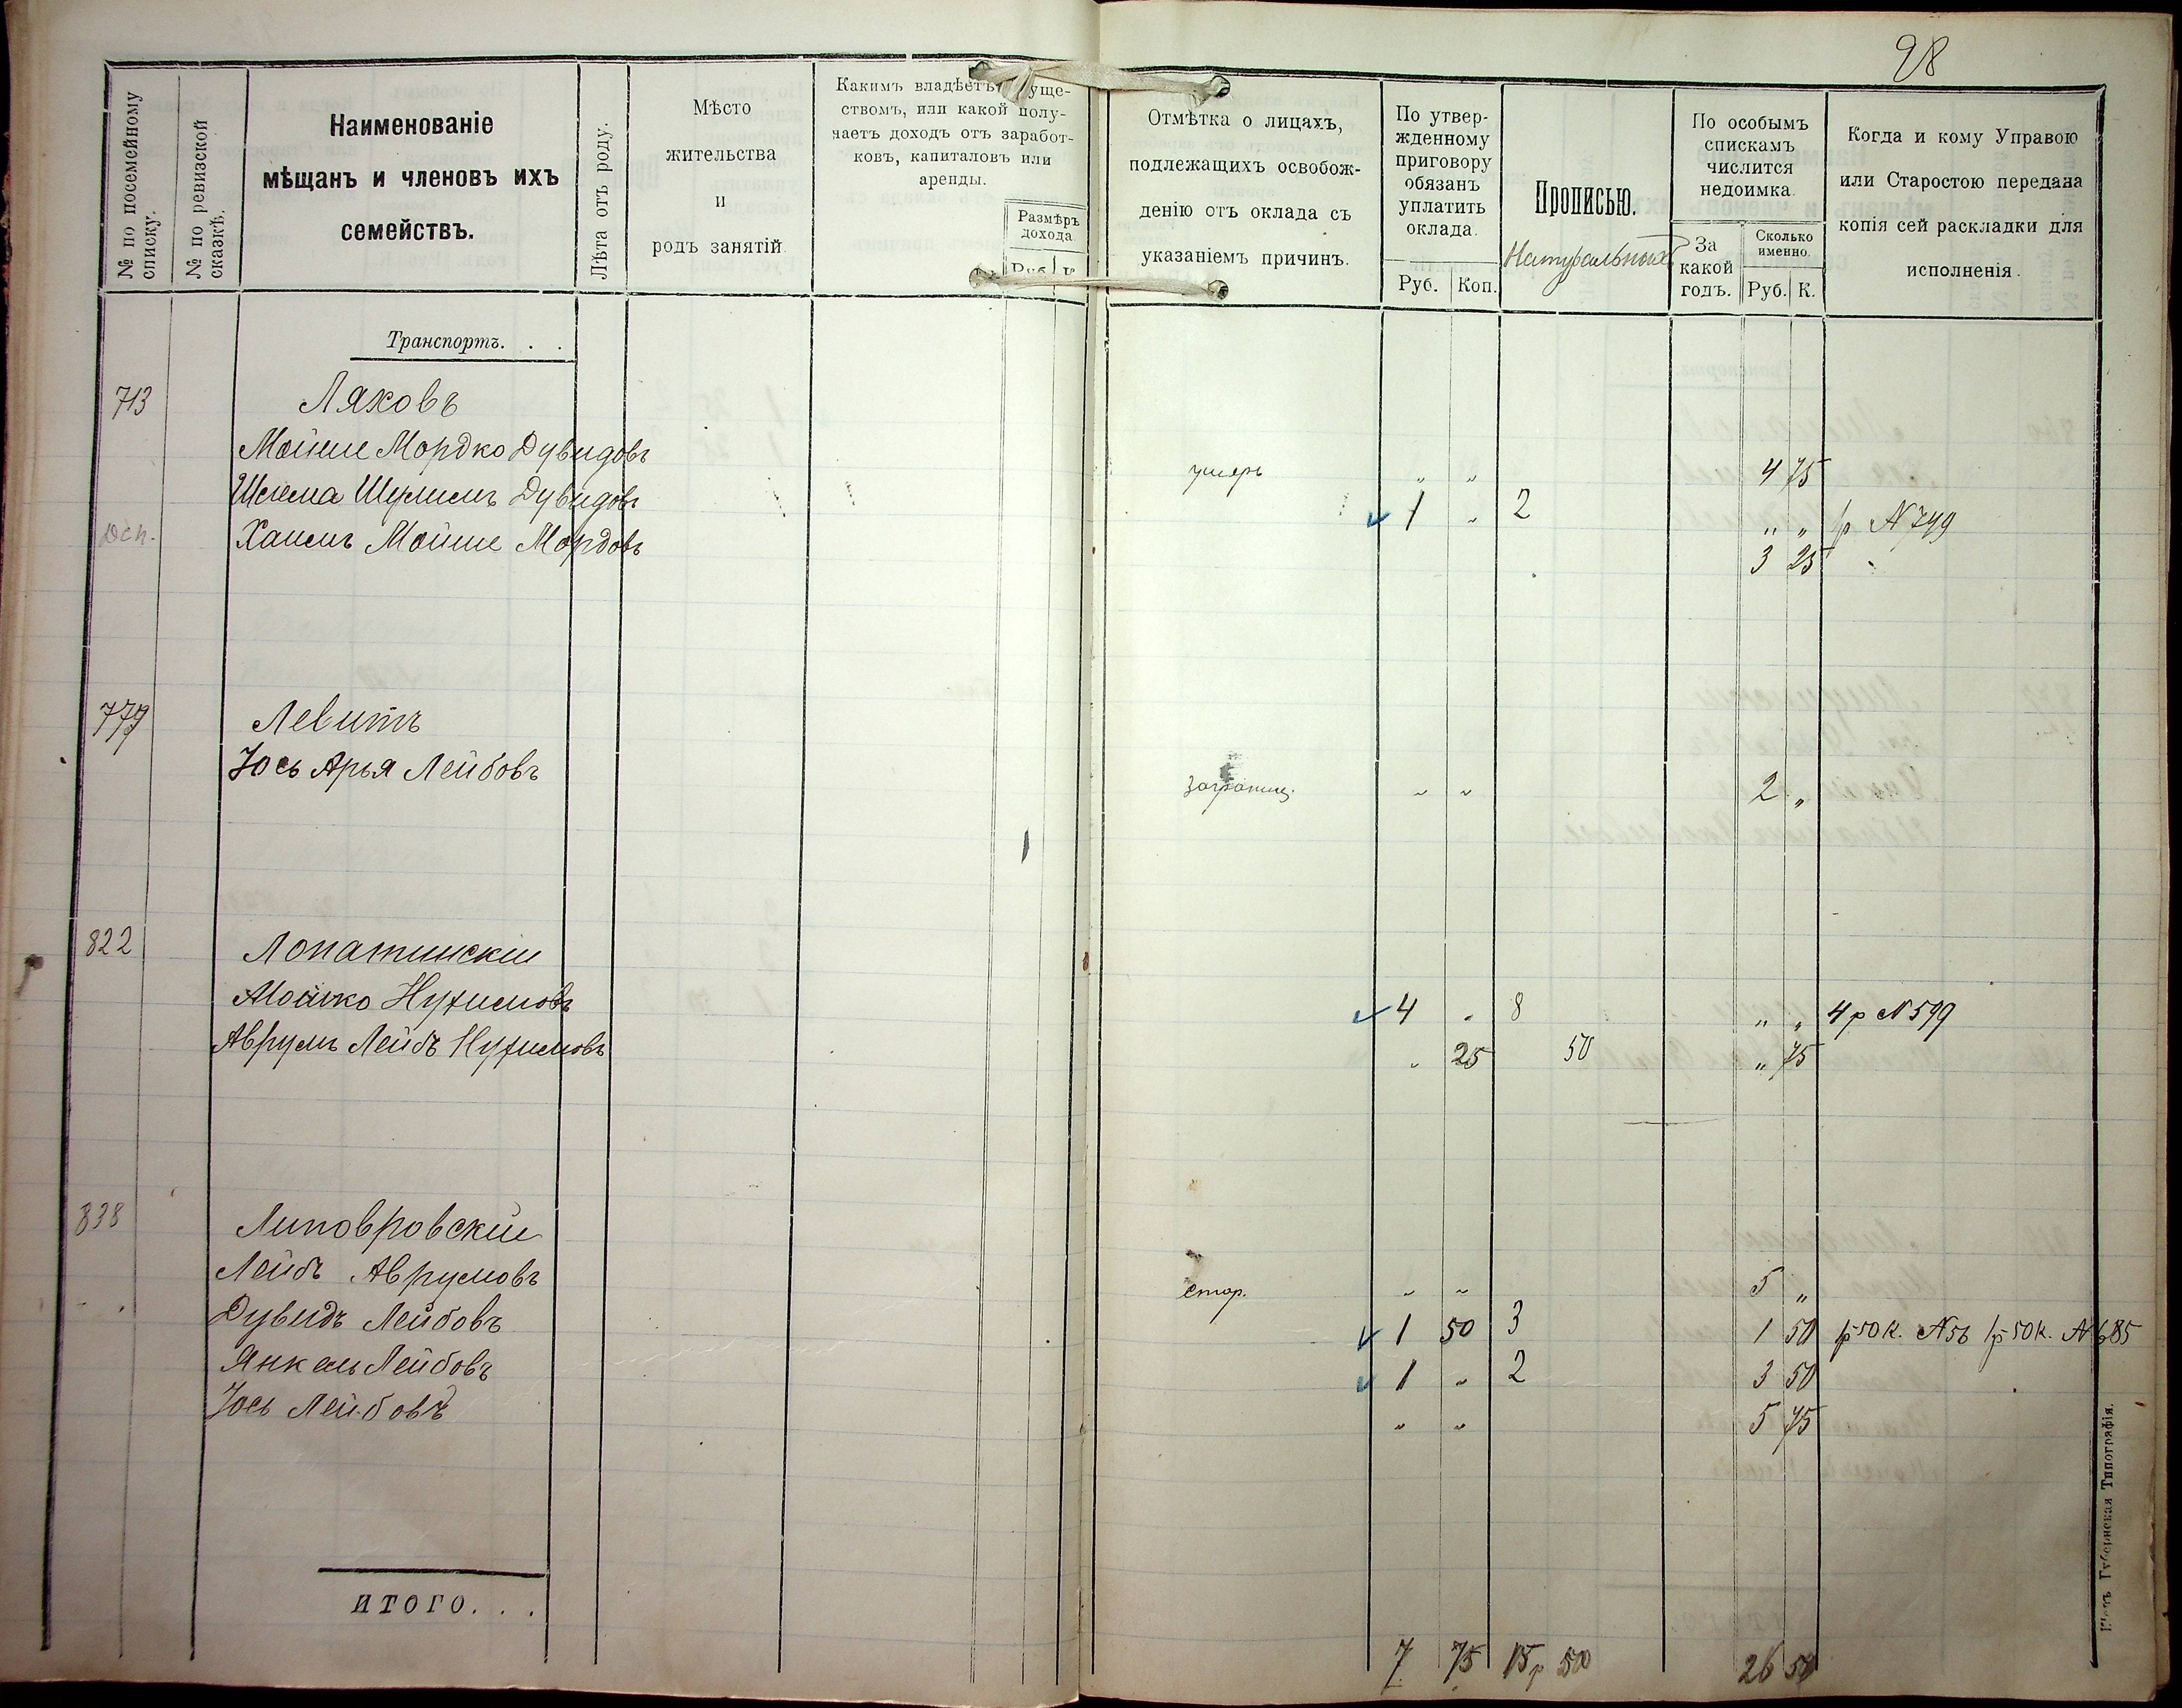 98
№ по посемейному списку.
№ по ревизской сказкѣ.
Наименованіе
мѣщанъ и членовъ ихъ
семействъ.
Лѣта отъ роду.
Мѣсто
жительства
и
родъ занятій.
Какимъ владѣетъ уще-
ствомъ, или какой полу-
чаетъ доходъ отъ заработ-
ковъ, капиталовъ или
аренды.
Размѣръ
дохода.
Руб. К
Отмѣтка о лицахъ,
подлежащихъ освобож-
денію отъ оклада съ
указаніемъ причинъ.
По утвер-
жденному
приговору
обязанъ
уплатить
оклада.
Руб. Коп.
Прописью.
Натуральныхъ
По особымъ
спискамъ
числится
недоимка.
За
какой
годъ.
Сколько
именно.
Руб. К.
Когда и кому Управою
или Старостою передана
копія сей раскладки для
исполненія.
Транспортъ. . .
713 Ляховъ
Мойше Мордко Дувидовъ умеръ " " 4 75
Шлема Шулимъ Дувидовъ 1 " 2 " " 1р N 749
Доп. Хаимъ Мойше Мордовъ 3 25
779 Левитъ
Іось Арья Лейбовъ заграниц. " " 2 "
822 Лопатинскій
Мошко Нухимовъ 4 " 8 " " 4р N 599
Аврумъ Лейбъ Нухимовъ " 25 50 " 75
838 Липовровскій
Лейбъ Аврумовъ стар. " " 5 "
Дувидъ Лейбовъ 1 50 3 1 50 1р 50к. N 56 1р 50к. N 685
Янкель Лейбовъ 1 " 2 3 50
Іось Лейбовъ " " 5 75
ИТОГО. . .
7 75 15р 50 26 50
Губернская Типографія.